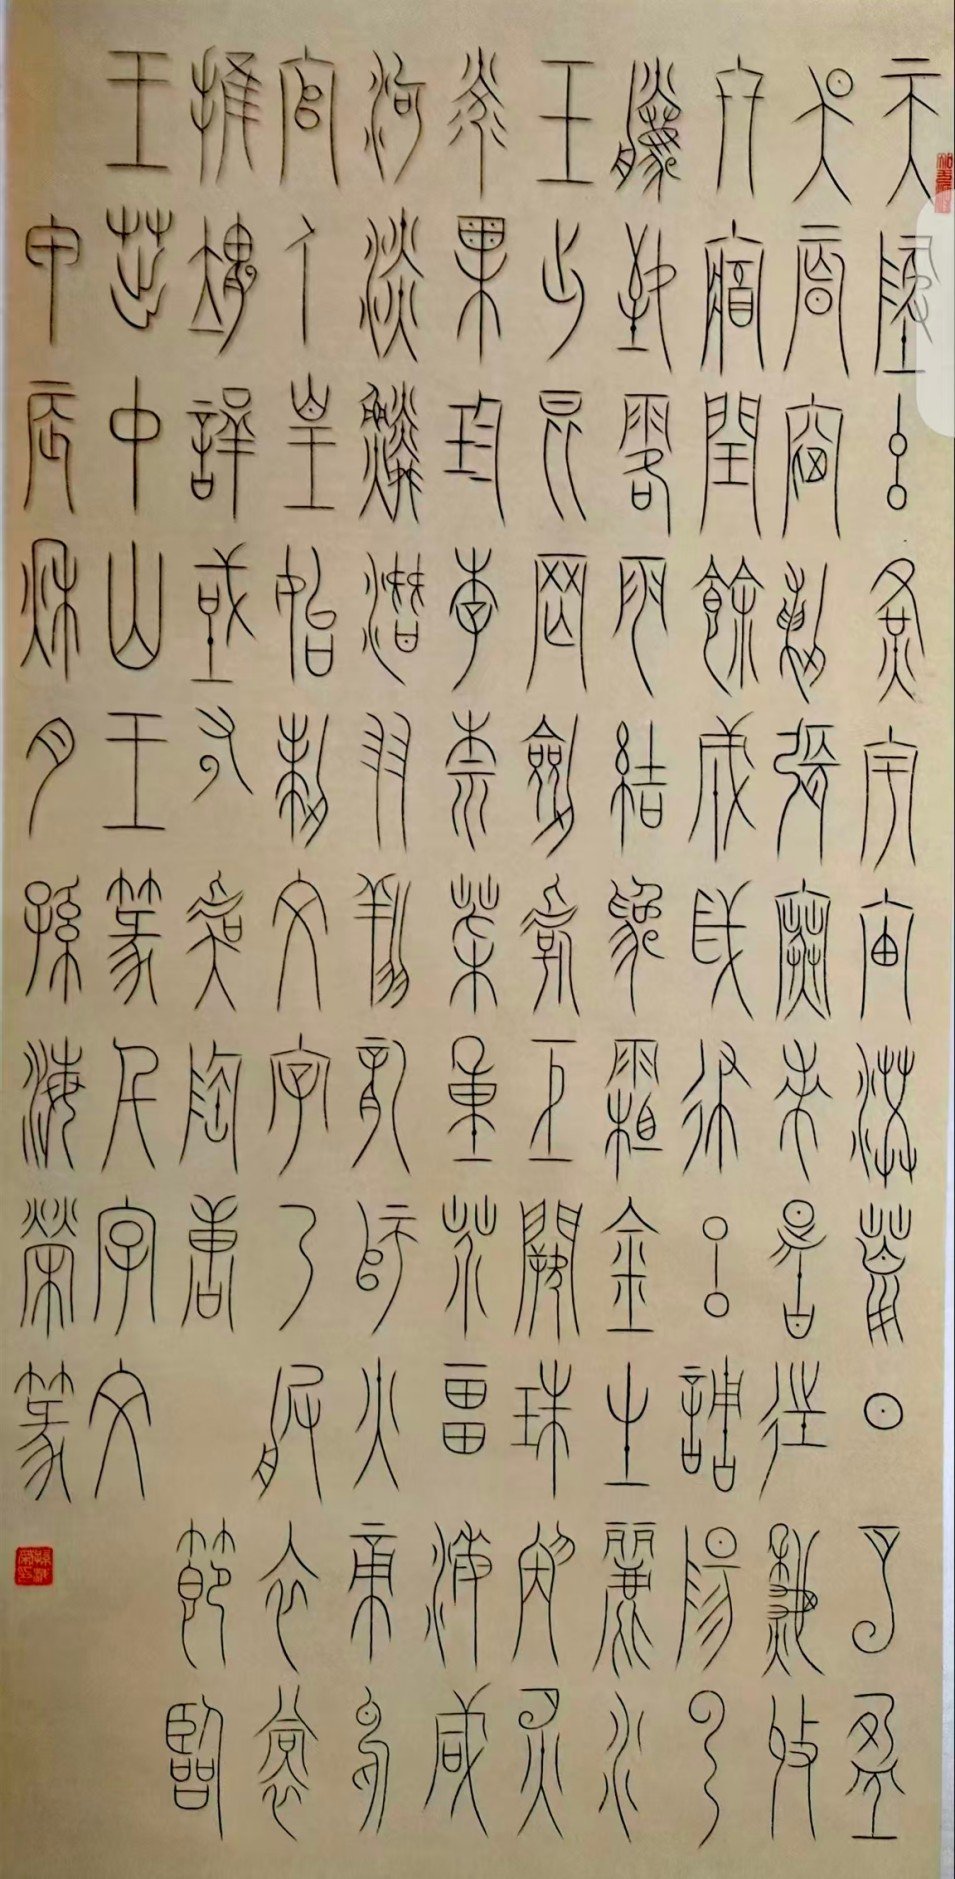 天地玄黃宇宙洪荒日月盈
昃辰宿列張寒來暑往秋收
冬藏閏餘成歲律呂調陽雲
騰致露雨結為霜金生麗水
玉出昆岡劍號巨闕珠夜光
稱果珍李柰菜重芥薑海咸
河淡鱗潛羽翔龍師火帝鳥
官人皇始制文字乃服衣裳
推位讓國有虞陶唐節臨
王中山王篆千字文
甲辰秋月孫海榮篆